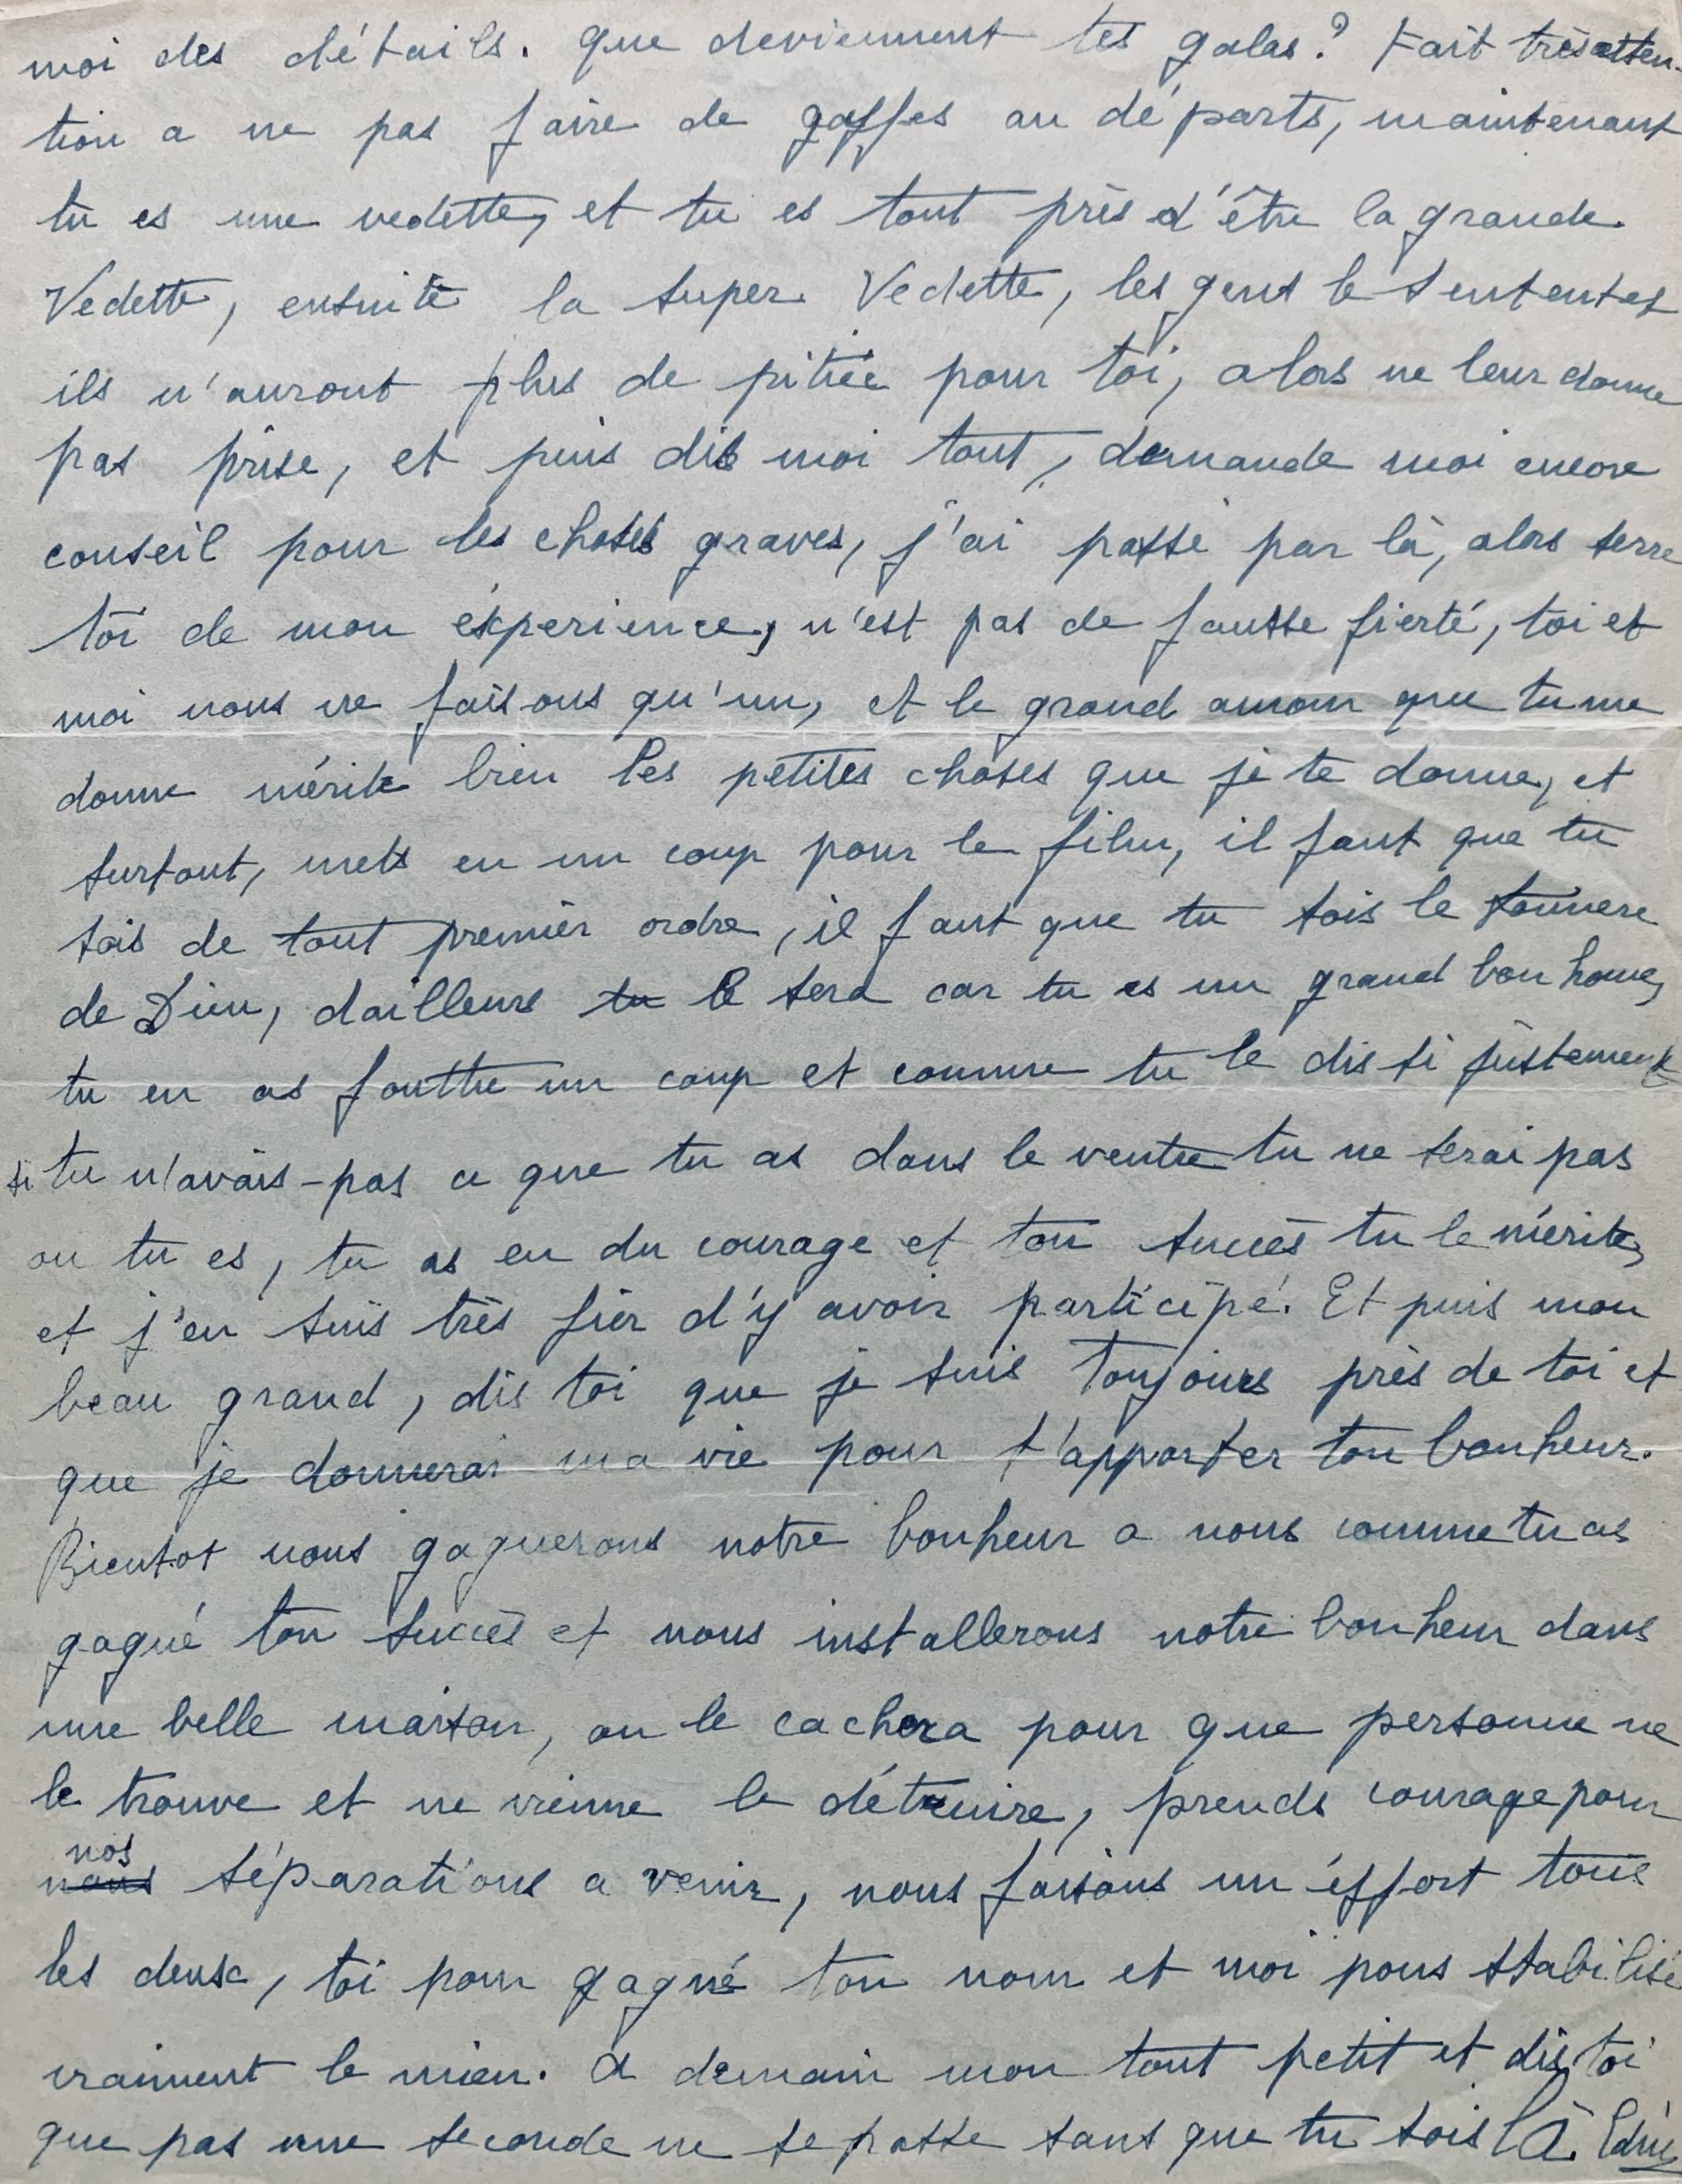 moi des détails. Que deviennent tes galas? Fait très atten-
tion a ne pas faire de gaffes au départs, maintenant
tu es une vedette, et tu es tout près d'être la grande
Vedette, ensuite la super Vedette, les gens le sentent et
ils n'auront plus de pitiée pour toi, alors ne leur donne
pas prise, et puis dis moi tout, demande moi encore
conseil pour les choses graves, j'ai passé par là, alors serre
toi de mon éxperience, n'est pas de fausse fierté, toi et
moi nous ne faisons qu'un, et le grand amour que tu me
donne mérite bien les petites choses que je te donne, et
surtout, mets en un coup pour le film, il faut que tu
sois de tout premier ordre, il faut que tu sois le tonnere
de Dieu, dailleurs tu le sera car tu es un grand bonhome,
tu en as fouttu un coup et comme tu le dis si justement
si tu n'avais-pas ce que tu as dans le ventre tu ne serai pas
ou tu es, tu as eu du courage et ton succès tu le mérite,
et j'en suis très fier d'y avoir participé. Et puis mon
beau grand, dis toi que je suis toujours près de toi et
que je donnerai ma vie pour t'apporter ton bonheur.
Bientot nous gagnerons notre bonheur a nous comme tu as
gagné ton succès et nous installerons notre bonheur dans
une belle maison, on le cachera pour que personne ne
le trouve et ne vienne le détruire, prends courage pour
nous nos séparations a venir, nous faisons un éffort tous
les deux, toi pour gagné ton nom et moi pour stabilisé
vraiment le mien. A demain mon tout petit et dis toi
que pas une seconde ne se passe sans que tu sois là.